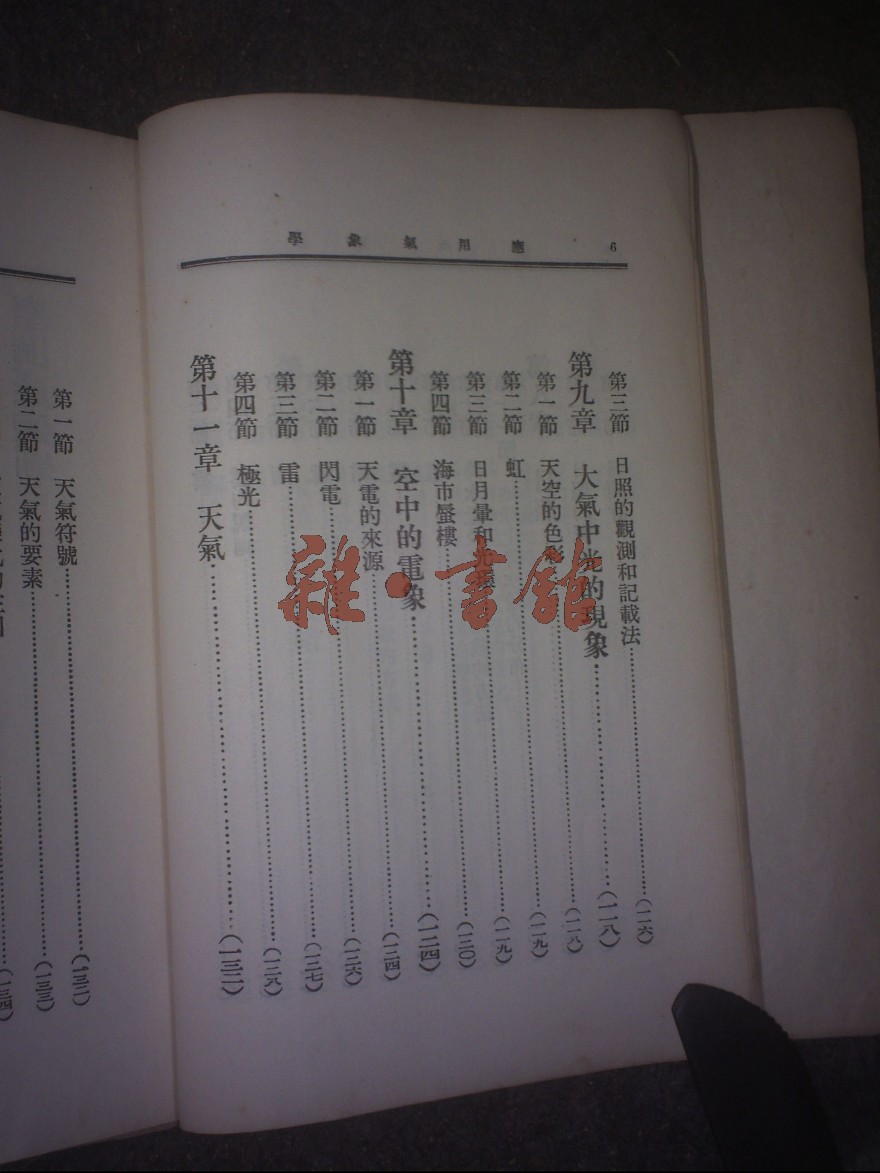 6 應用氣象學
第三節 日照的觀測和記載法……(一一六)
第九章 大氣中光的現象……(一一八)
第一節 天空的色彩……(一一八)
第二節 虹……(一一九)
第三節 日月暈和光環……(一一九)
第四節 海市蜃樓……(一二〇)
第十章 空中的電象……(一二四)
第一節 天電的來源……(一二四)
第二節 閃電……(一二六)
第三節 雷……(一二七)
第四節 極光……(一二八)
第十一章 天氣……(一三二)
第一節 天氣符號……(一三二)
第二節 天氣的要素……(一三三)
(一三四)
雜·書館